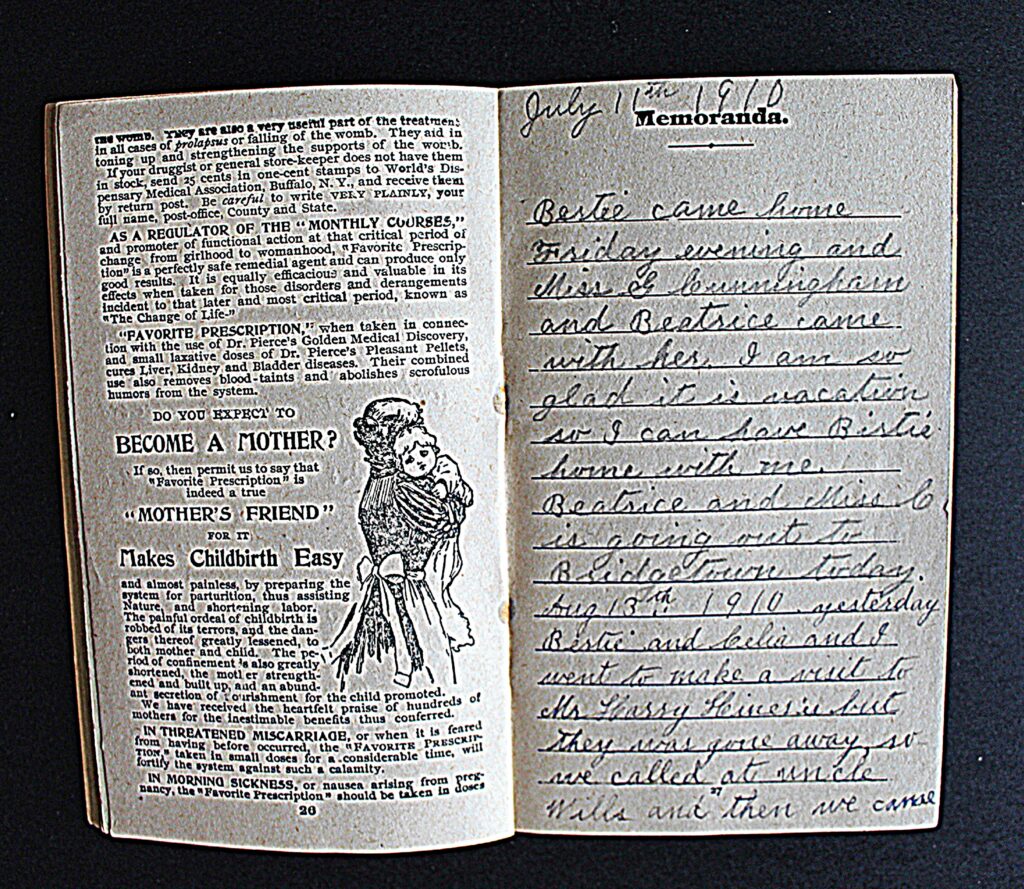 the womb. They are also a very useful part of the treatment
in all cases of prolapsus or falling of the womb. They aid in
toning up and strengthening the supports of the womb.
If your druggist or general store-keeper does not have them
in stock, send 25 cents in one-cent stamps to World's Dis-
pensary Medical Association, Buffalo, N. Y., and receive them
by return post. Be careful to write VERY PLAINLY, your
full name, post-office, County and State.
AS A REGULATOR OF THE "MONTHLY COURSES,"
and promoter of functional action at that critical period of
change from girlhood to womanhood, "Favorite Prescrip-
tion" is a perfectly safe remedial agent and can produce only
good results. It is equally efficacious and valuable in its
effects when taken for those disorders and derangements
incident to that later and most critical period, known as
"The Change of Life-"
"FAVORITE PRESCRIPTION," when taken in connec-
tion with the use of Dr. Pierce's Golden Medical Discovery,
and small laxative doses of Dr. Pierce's Pleasant Pellets,
cures Liver, Kidney and Bladder diseases. Their combined
use also removes blood-taints and abolishes scrofulous
humors from the system.
DO YOU EXPECT TO
BECOME A MOTHER?
If so, then permit us to say that
"Favorite Prescription" is
indeed a true
"MOTHER'S FRIEND"
FOR IT
Makes Childbirth Easy
and almost painless, by preparing the
system for parturition, thus assisting
Nature, and shortening labor.
The painful ordeal of childbirth is
robbed of its terrors, and the dan-
gers thereof greatly lessened, to
both mother and child. The pe-
riod of confinement is also greatly
shortened, the mother strength-
ened and built up, and an abund-
ant secretion of nourishment for the child promoted.
We have received the heartfelt praise of hundreds of
mothers for the inestimable benefits thus conferred.
IN THREATENED MISCARRIAGE, or when it is feared
from having before occurred, the "FAVORITE PRESCRIP-
TION," taken in small doses for a considerable time, will
fortify the system against such a calamity.
IN MORNING SICKNESS, or nausea arising from preg-
nancy, the "Favorite Prescription" should be taken in doses
26
July 11th 1910
Memoranda.
Bertie came home
Friday evening and
Miss G Cunningham
and Beatrice came
with her. I am so
glad it is vacation
so I can have Birtie
home with me.
Beatrice and Miss C
is going out to
Bridgetown today.
Aug 13th 1910. yesterday
Bertie and Celia and I
went to make a visit to
Mr Harry but
they was gone away, so
we called at uncle
Wills and then we came
27